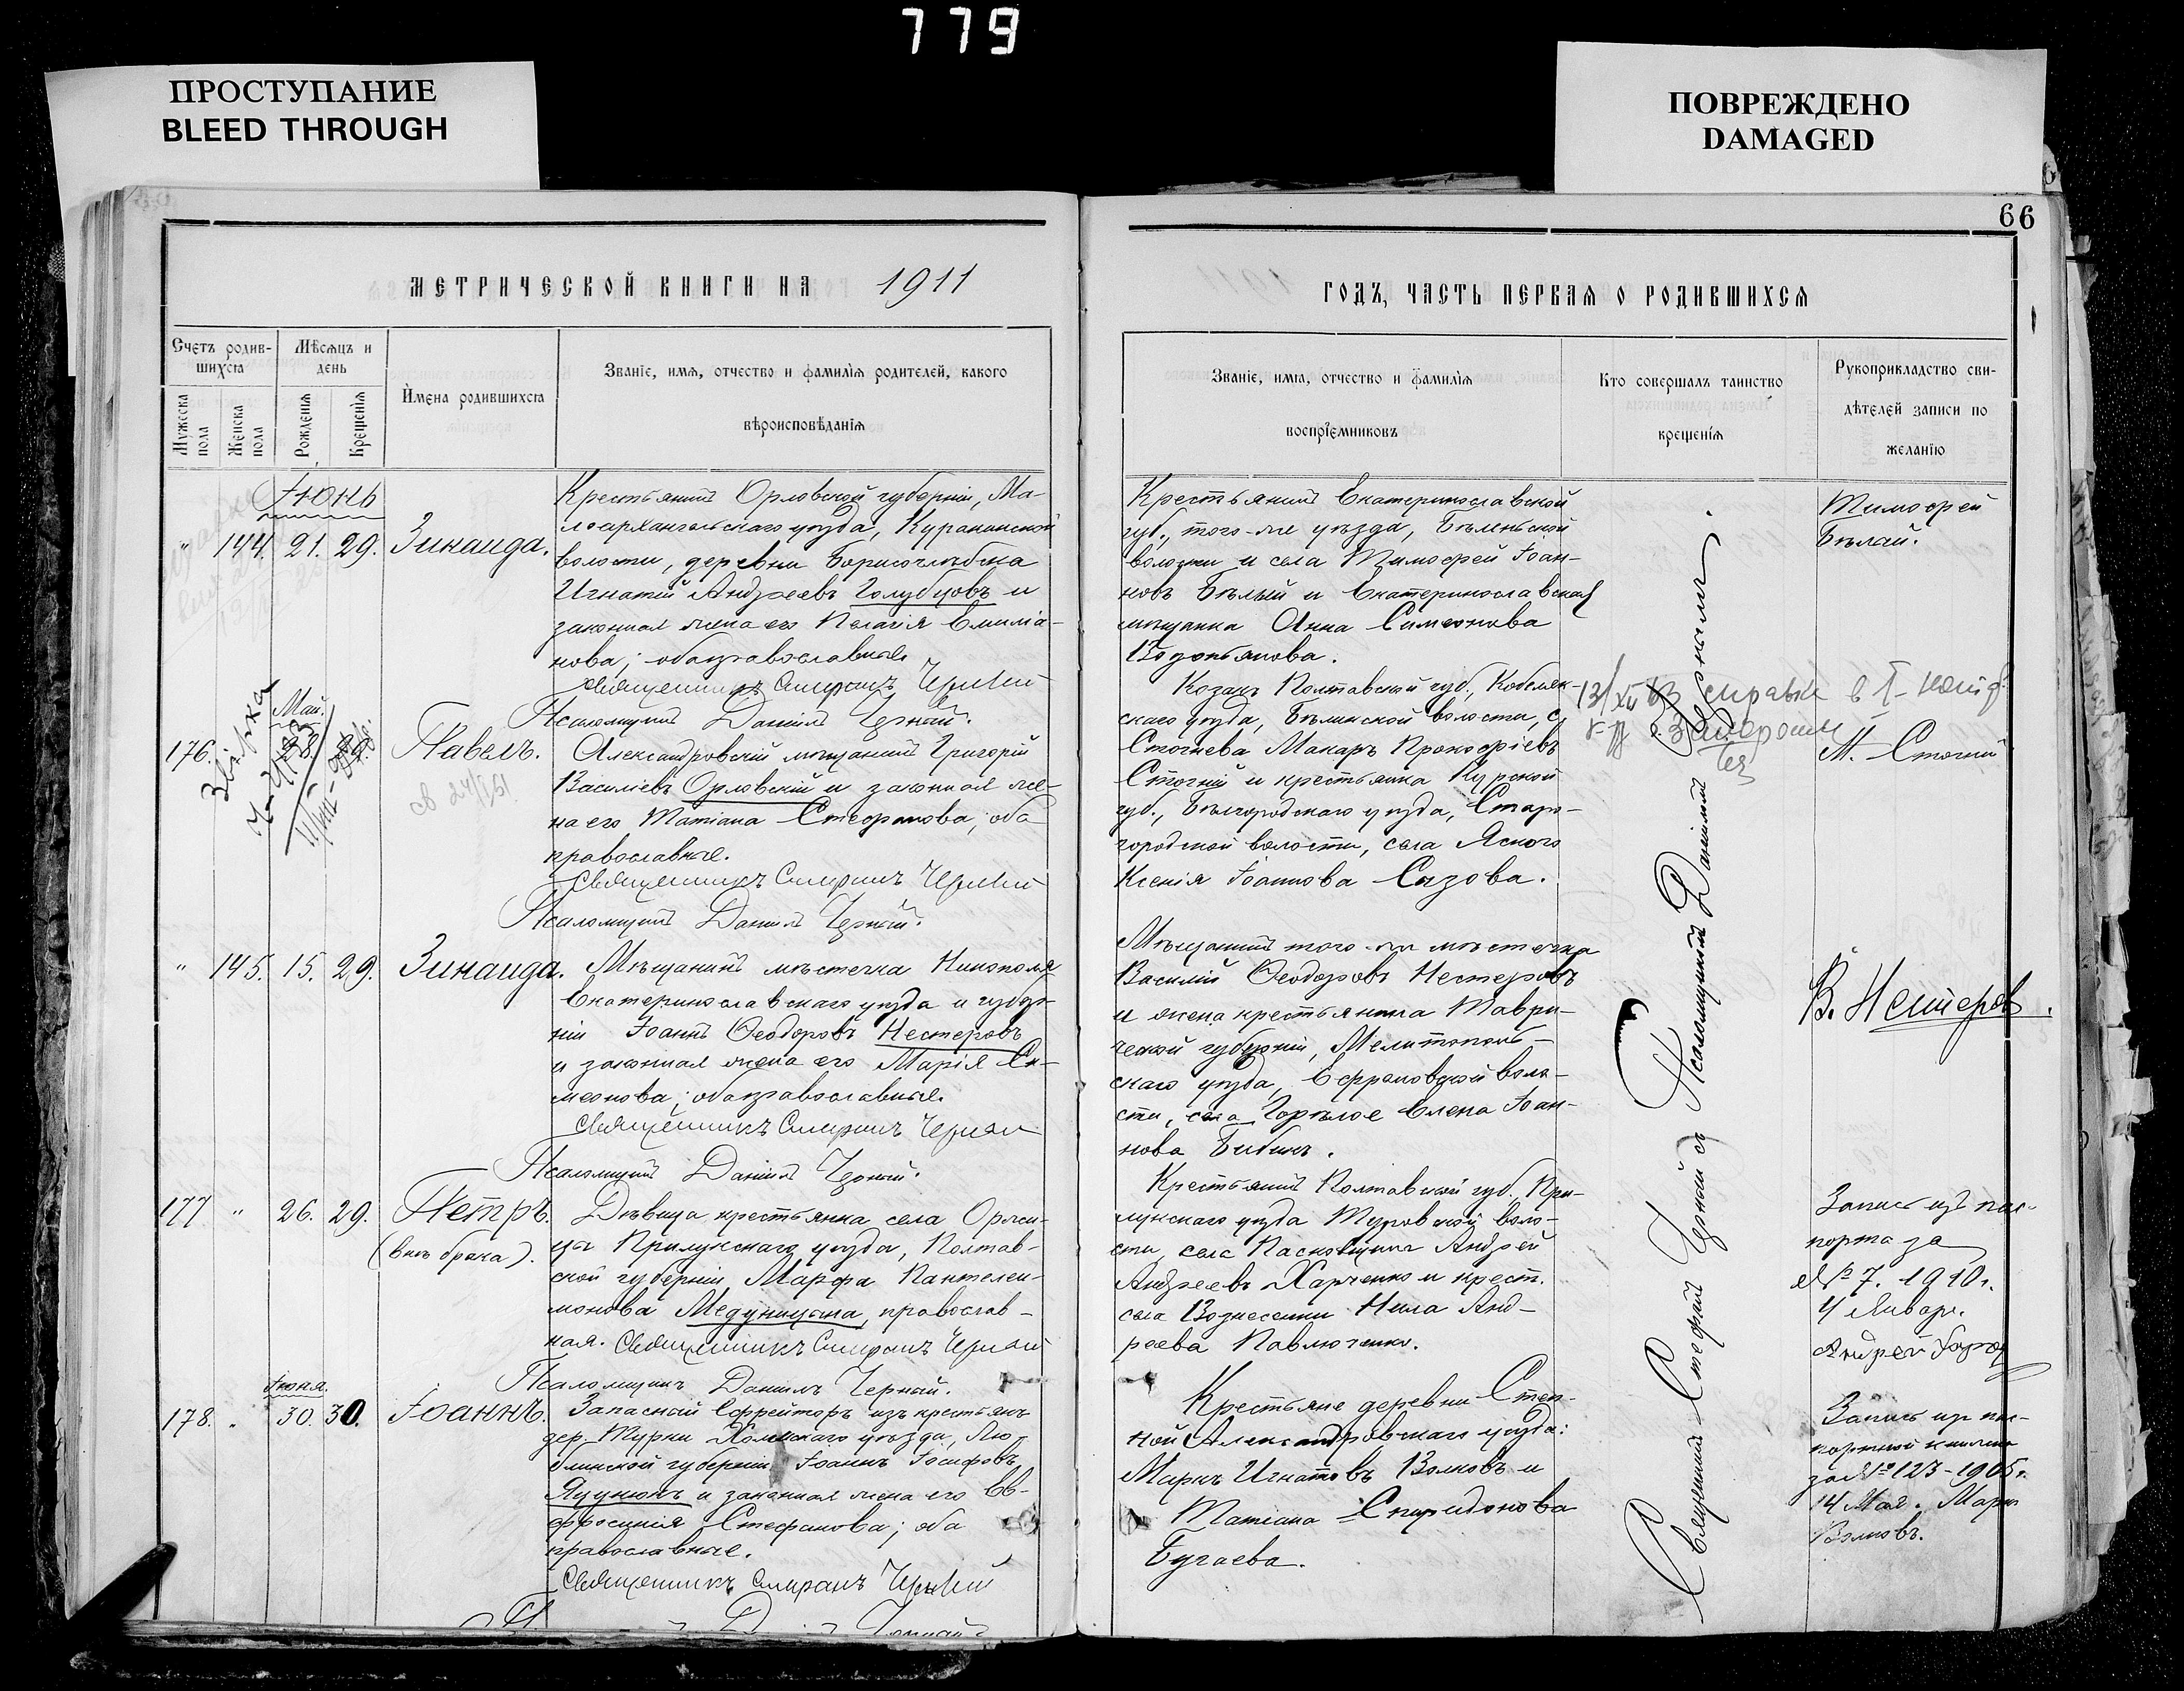 779
ПРОСТУПАНИЕ
BLEED THROUGH
ПОВРЕЖДЕНО
DAMAGED
66
МЕТРИЧЕСКОЙ КНИГИ НА 1911
ГОДЪ, ЧАСТЬ ПЕРВАЯ О РОДИВШИХСЯ
Счетъ родив-
шихся
Мужеска пола
Женска пола
Мѣсяцъ и
день
Рожденія
Крещенія
Имена родившихся
Званіе, имя, отчество и фамилія родителей, какого
вѣроисповѣданія
Званіе, имя, отчество и фамилія
воспріемниковъ
Кто совершалъ таинство
крещенія
Рукоприкладство сви-
дѣтелей записи по
желанію
Іюнь
" 144. 21. 29. Зинаида.
Крестьянинъ Орловской губерніи, Ма-
лоархангельскаго уѣзда, Куракинской
волости, деревни Борисоглѣбска
Игнатій Андреевъ Голубцовъ и
законная жена его Пелагія Емиліа-
нова; оба православные.
Священникъ Черный
Псаломщикъ Даніилъ Черный.
Крестьянинъ Екатеринославской
губ., того-же уѣзда, Бѣленьской
волости и села Тимофей Іоан-
новъ Бѣлый и Екатеринославская
мѣщанка Анна Симеонова
Водопьянова.
Тимофей
Бѣлай.
Май.
176. 28. Павелъ.
Звірка
св 24/I 51
Александровскій мѣщанинъ Григорій
Василіевъ Орловскій и законная же-
на его Татіана Стефанова; оба
православные.
Священникъ Черный
Псаломщикъ Даніилъ Черный.
Козакъ Полтавской губ., Кобеляк-
скаго уѣзда, Бѣлинской волости, с.
Стогнева Макаръ Прокофіевъ
Стогній и крестьянка Курской
губ., Бѣлгородскаго уѣзда, Старо-
городской волости, села Яснаго
Ксенія Іоаннова Сазова.
справка в
М. Стогний
" 145. 15. 29. Зинаида.
Мѣщанинъ мѣстечка Никополя
Екатеринославскаго уѣзда и губер-
ніи Іоаннъ Ѳеодоровъ Нестеровъ
и законная жена его Марія Си-
меонова; оба православные.
Священникъ Черный
Псаломщикъ Даніилъ Черный.
Мѣщанинъ того-же мѣстечка
Василій Ѳеодоровъ Нестеровъ
и жена крестьянина Таври-
ческой губерніи, Мелитополь-
скаго уѣзда, Ефремовской воло-
сти, села Горѣлое Елена Іоан-
нова Бибикъ.
В. Нестеров.
177 " 26. 29. Петръ.
(внѣ брака).
Дѣвица крестьянка села
Прилукскаго уѣзда, Полтав-
ской губерніи Марфа Пантелеи-
монова Медуницына, православ-
ная. Священникъ Черный
Псаломщикъ Даніилъ Черный.
Крестьянинъ Полтавской губ. При-
лукскаго уѣзда Туровской воло-
сти, села Андрей
Андреевъ Харченко и крест.
села Вознесенки Нила Анд-
реева Павлюченко.
Запись изъ пас-
порта за
№ 7. 1910 г.
4 Января.
Андрей
Іюня.
178. " 30. 30. Іоаннъ.
Запасный Ефрейторъ изъ крестьянъ
дер. Турки Холмскаго уѣзда, Лю-
блинской губерніи Іоаннъ Іосифовъ
Яцунюкъ и законная жена его Ев-
фросинія Стефанова; оба
православные.
Священникъ Черный
Крестьяне деревни Степ-
ной Александровскаго уѣзда:
Маркъ Игнатовъ Волковъ и
Татіана Спиридонова
Бугаева.
Запись изъ пас-
портной книжки
за № 123-1905 г.
14 Мая. Маркъ
Волковъ.
Священникъ Стефанъ Черный съ Псаломщикомъ Даніиломъ